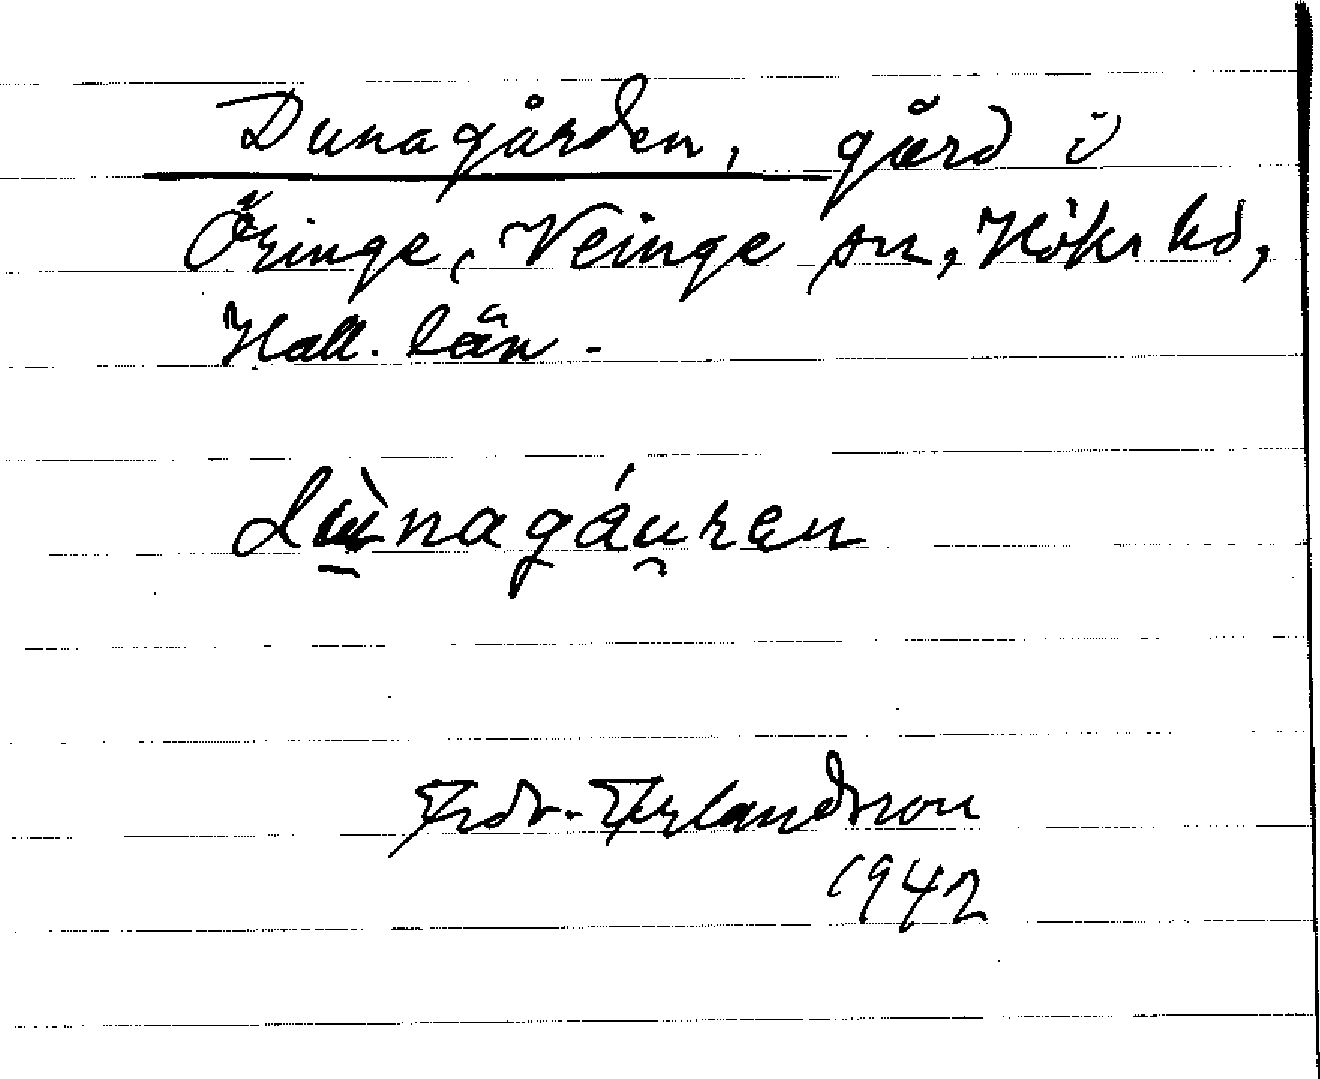 Dunagården, gård i
Öringe, Veinge sn, Höks hd,
Hall. län.
dùnagáu̯ren
Frdr. Erlandsson
1942